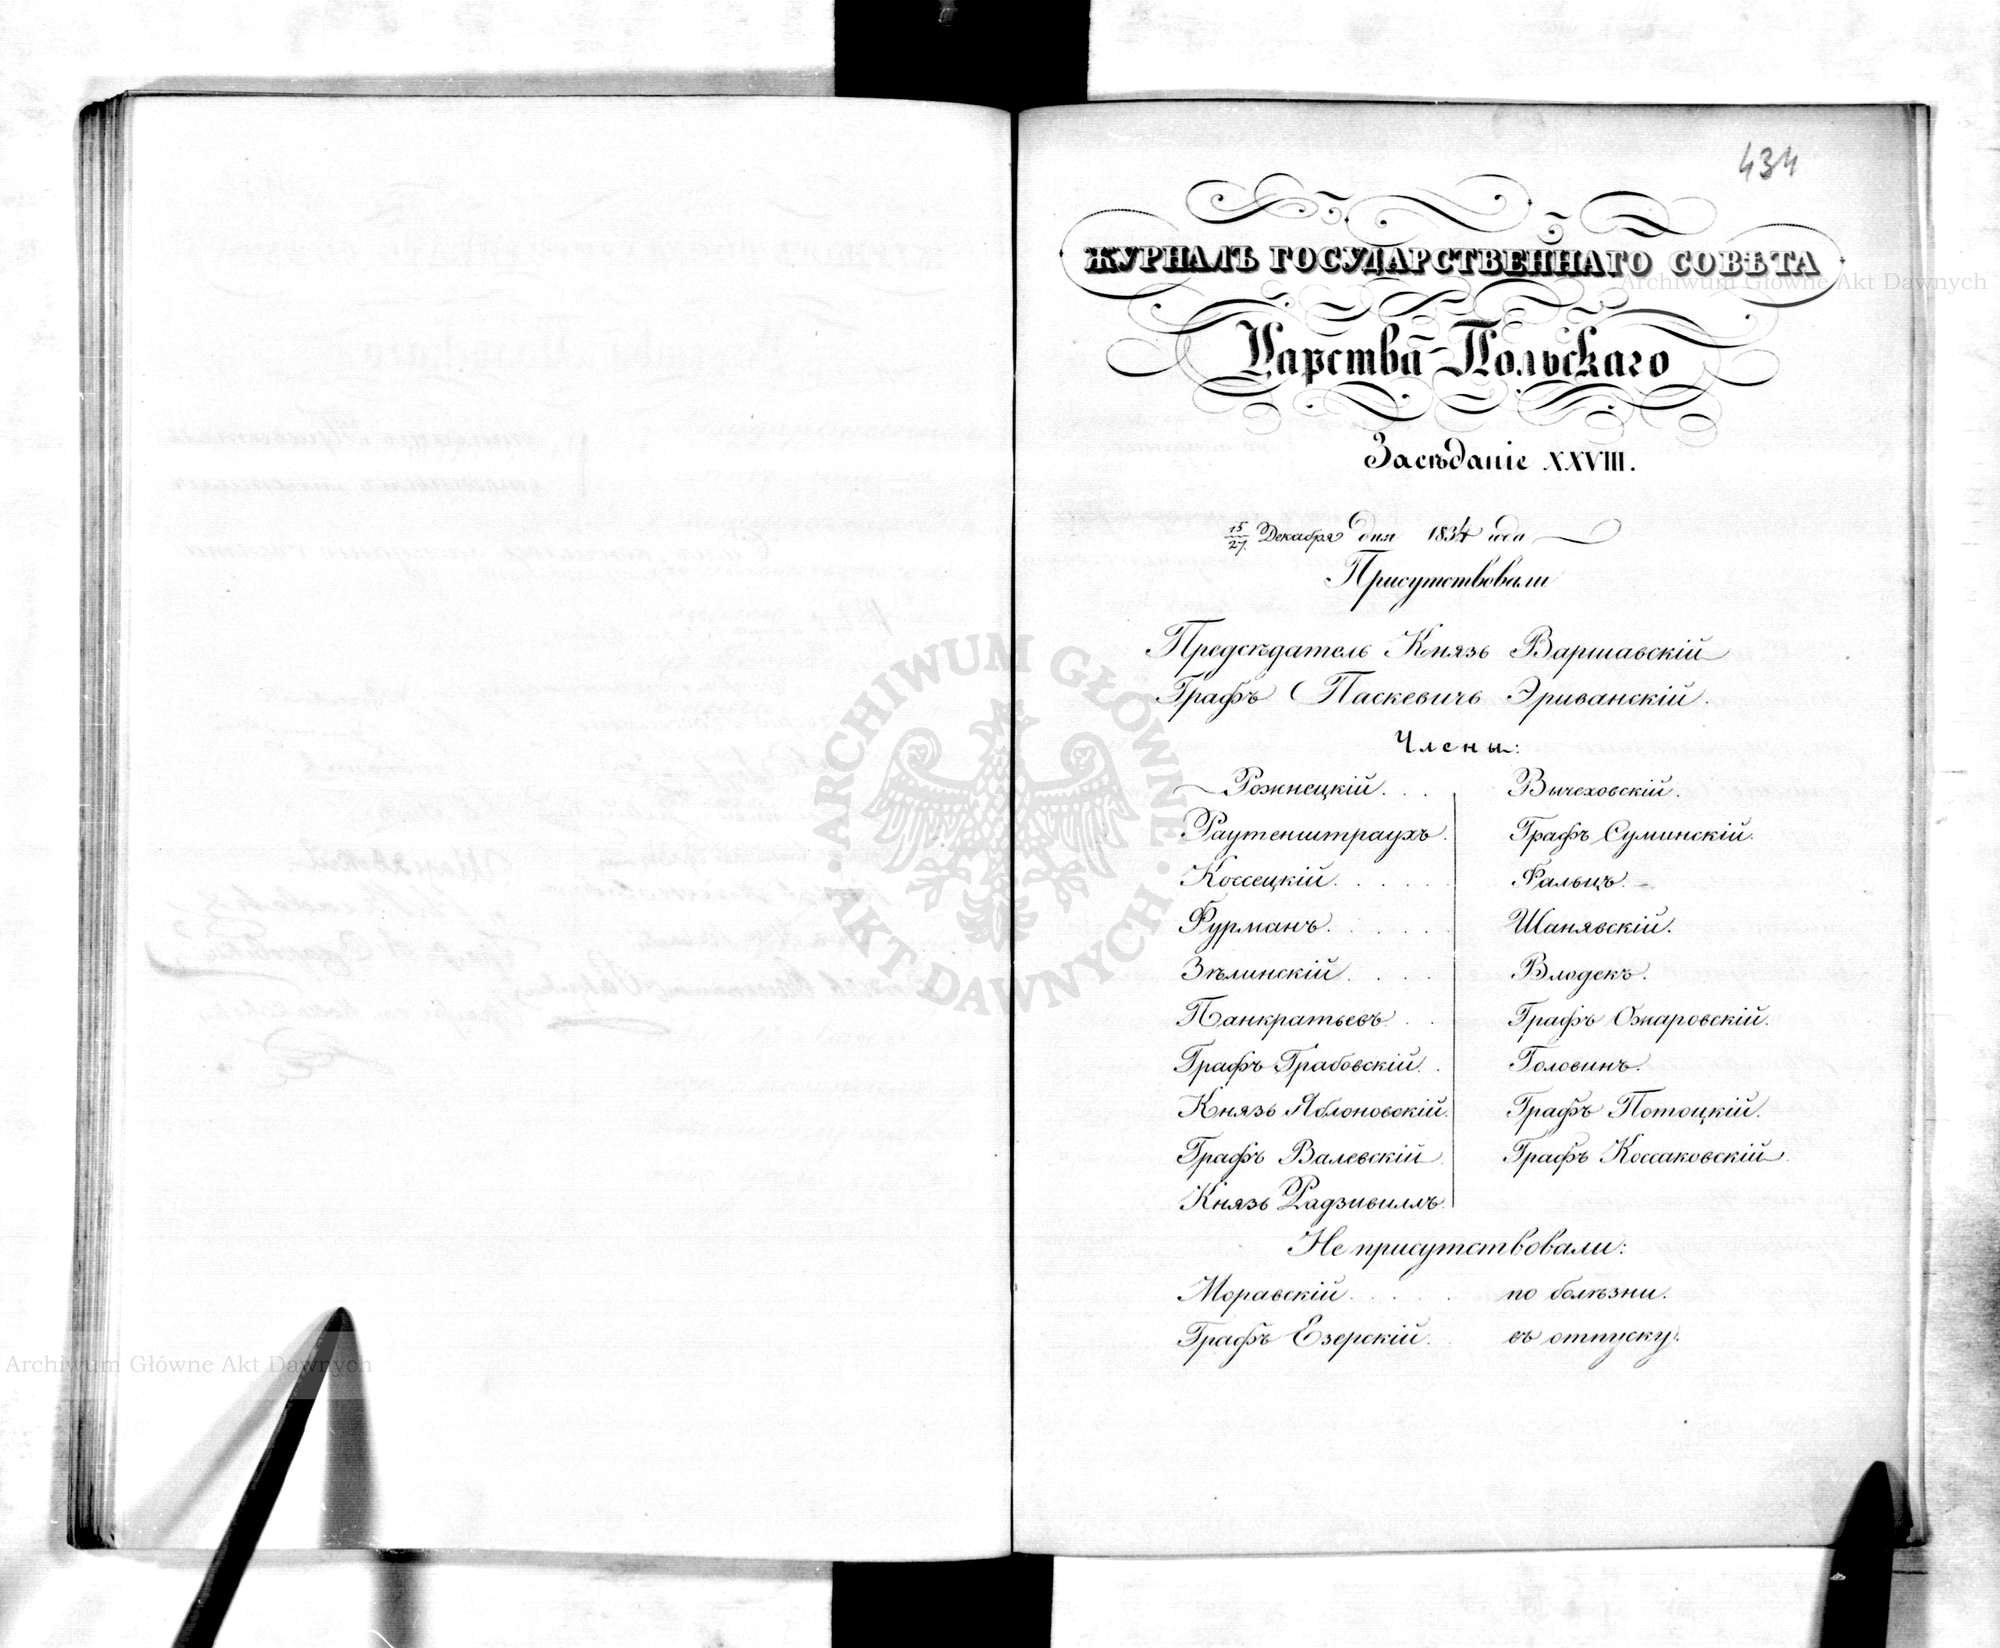 434
ЖУРНАЛЪ ГОСУДАРСТВЕННАГО СОВѢТА
Царства Польскаго
Засѣданіе XXVIII.
15/27 Декабря дня 1834 года
Присутствовали
Предсѣдатель Князь Варшавскій
Графъ Паскевичъ Эриванскій.
Члены:
Рожнецкій. . . Вычеховскій.
Раутенштраухъ. Графъ Суминскій.
Коссецкій. . . . . Фальцъ.
Фурманъ. . . . . Шанявскій.
Зѣлинскій. . . . Влодекъ.
Панкратьевъ. . . Графъ Ожаровскій.
Графъ Грабовскій. . Головинъ.
Князь Яблоновскій. Графъ Потоцкій.
Графъ Валевскій. Графъ Коссаковскій.
Князь Радзивиллъ.
Не присутствовали:
Моравскій. . . . . по болѣзни.
Графъ Езерскій. . въ отпуску.
ARCHIWUM GŁÓWNE · AKT DAWNYCH ·
Archiwum Główne Akt Dawnych
Archiwum Główne Akt Dawnych